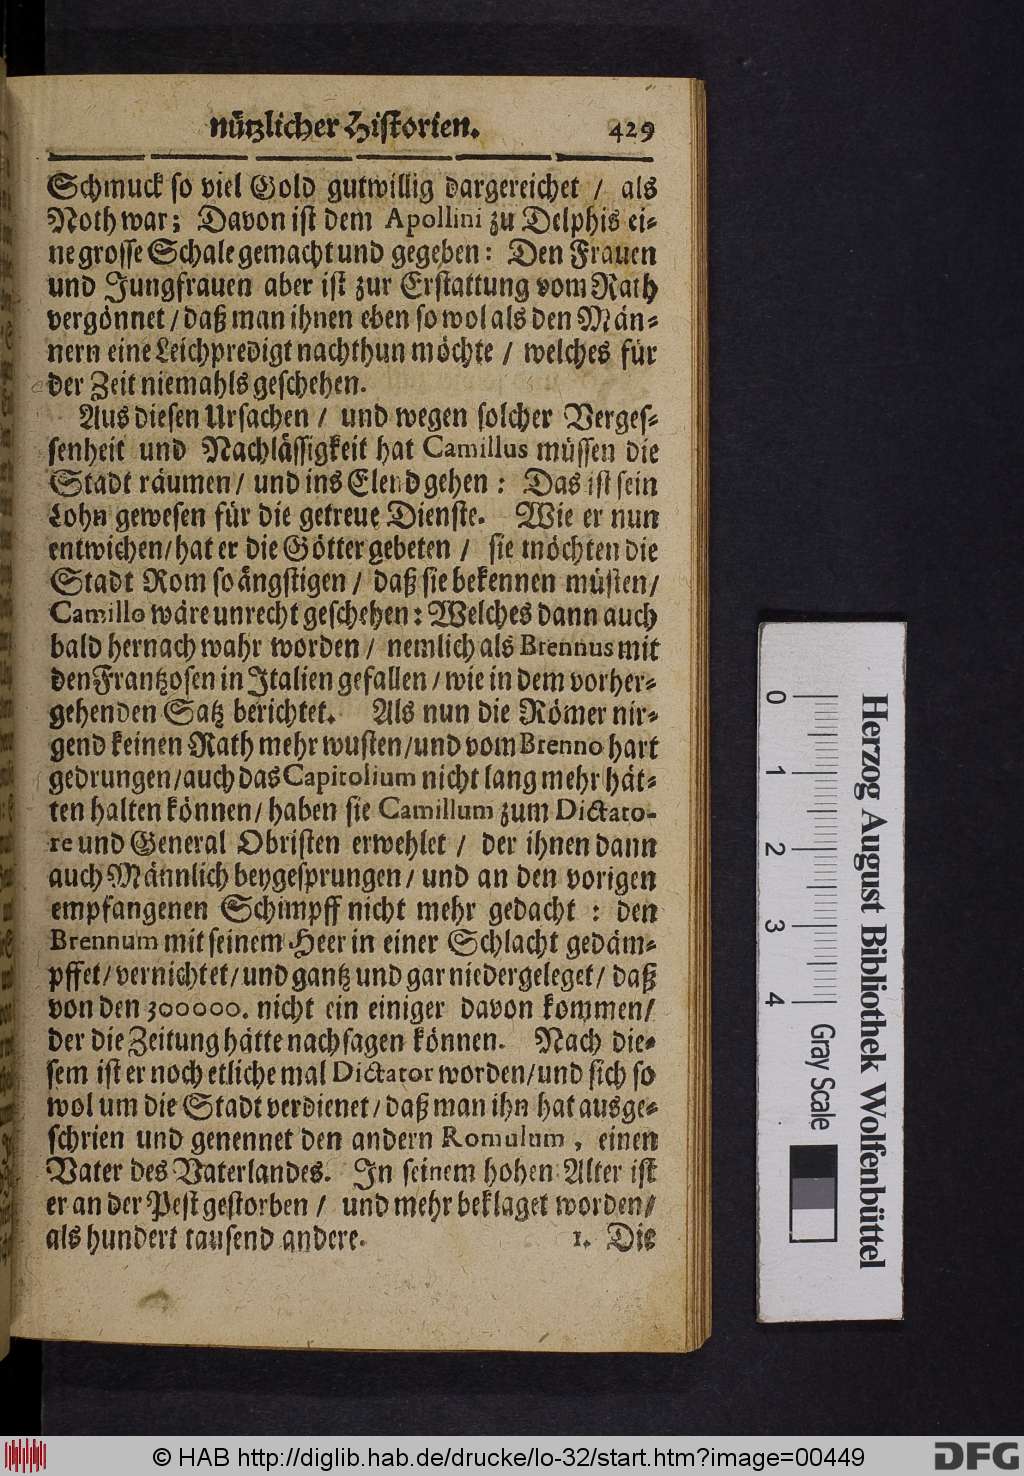 nützlicher Historien. 429
Schmuck so viel Gold gutwillig dargereichet / als
Noth war; Davon ist dem Apollini zu Delphis ei-
ne grosse Schale gemacht und gegeben: Den Frauen
und Jungfrauen aber ist zur Erstattung vom Rath
vergönnet / daß man ihnen eben so wol als den Män-
nern eine Leichpredigt nachthun möchte / welches für
der Zeit niemahls geschehen.
Aus diesen Ursachen / und wegen solcher Verges-
senheit und Nachlässigkeit hat Camillus müssen die
Stadt räumen / und ins Elend gehen : Das ist sein
Lohn gewesen für die getreue Dienste. Wie er nun
entwichen / hat er die Götter gebeten / sie möchten die
Stadt Rom so ängstigen / daß sie bekennen müsten /
Camillo wäre unrecht geschehen: Welches dann auch
bald hernach wahr worden / nemlich als Brennus mit
den Frantzosen in Italien gefallen / wie in dem vorher-
gehenden Satz berichtet. Als nun die Römer nir-
gend keinen Rath mehr wusten / und vom Brenno hart
gedrungen / auch das Capitolium nicht lang mehr hät-
ten halten können / haben sie Camillum zum Dictato-
re und General Obristen erwehlet / der ihnen dann
auch Männlich beygesprungen / und an den vorigen
empfangenen Schimpff nicht mehr gedacht : den
Brennum mit seinem Heer in einer Schlacht gedäm-
pffet / vernichtet / und gantz und gar niedergeleget / daß
von den 300000. nicht ein einiger davon kommen /
der die Zeitung hätte nachsagen können. Nach die-
sem ist er noch etliche mal Dictator worden / und sich so
wol um die Stadt verdienet / daß man ihn hat ausge-
schrien und genennet den andern Romulum, einen
Vater des Vaterlandes. In seinem hohen Alter ist
er an der Pest gestorben / und mehr beklaget worden /
als hundert tausend andere. 1. Die
0 1 2 3 4 Gray Scale
Herzog August Bibliothek Wolfenbüttel
© HAB http://diglib.hab.de/drucke/lo-32/start.htm?image=00449
DFG